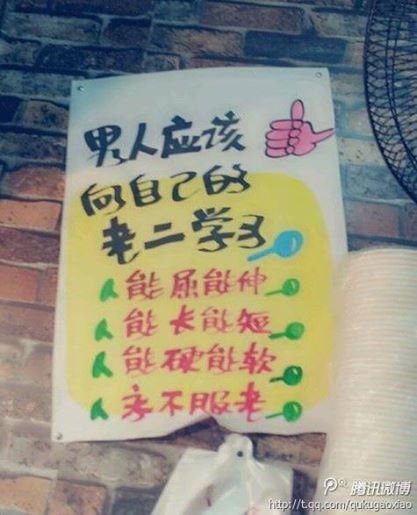 男人应该
向自己的
老二学习
能屈能伸
能长能短
能硬能软
永不服老
腾讯微博
http://t.qq.com/qukugaoxiao